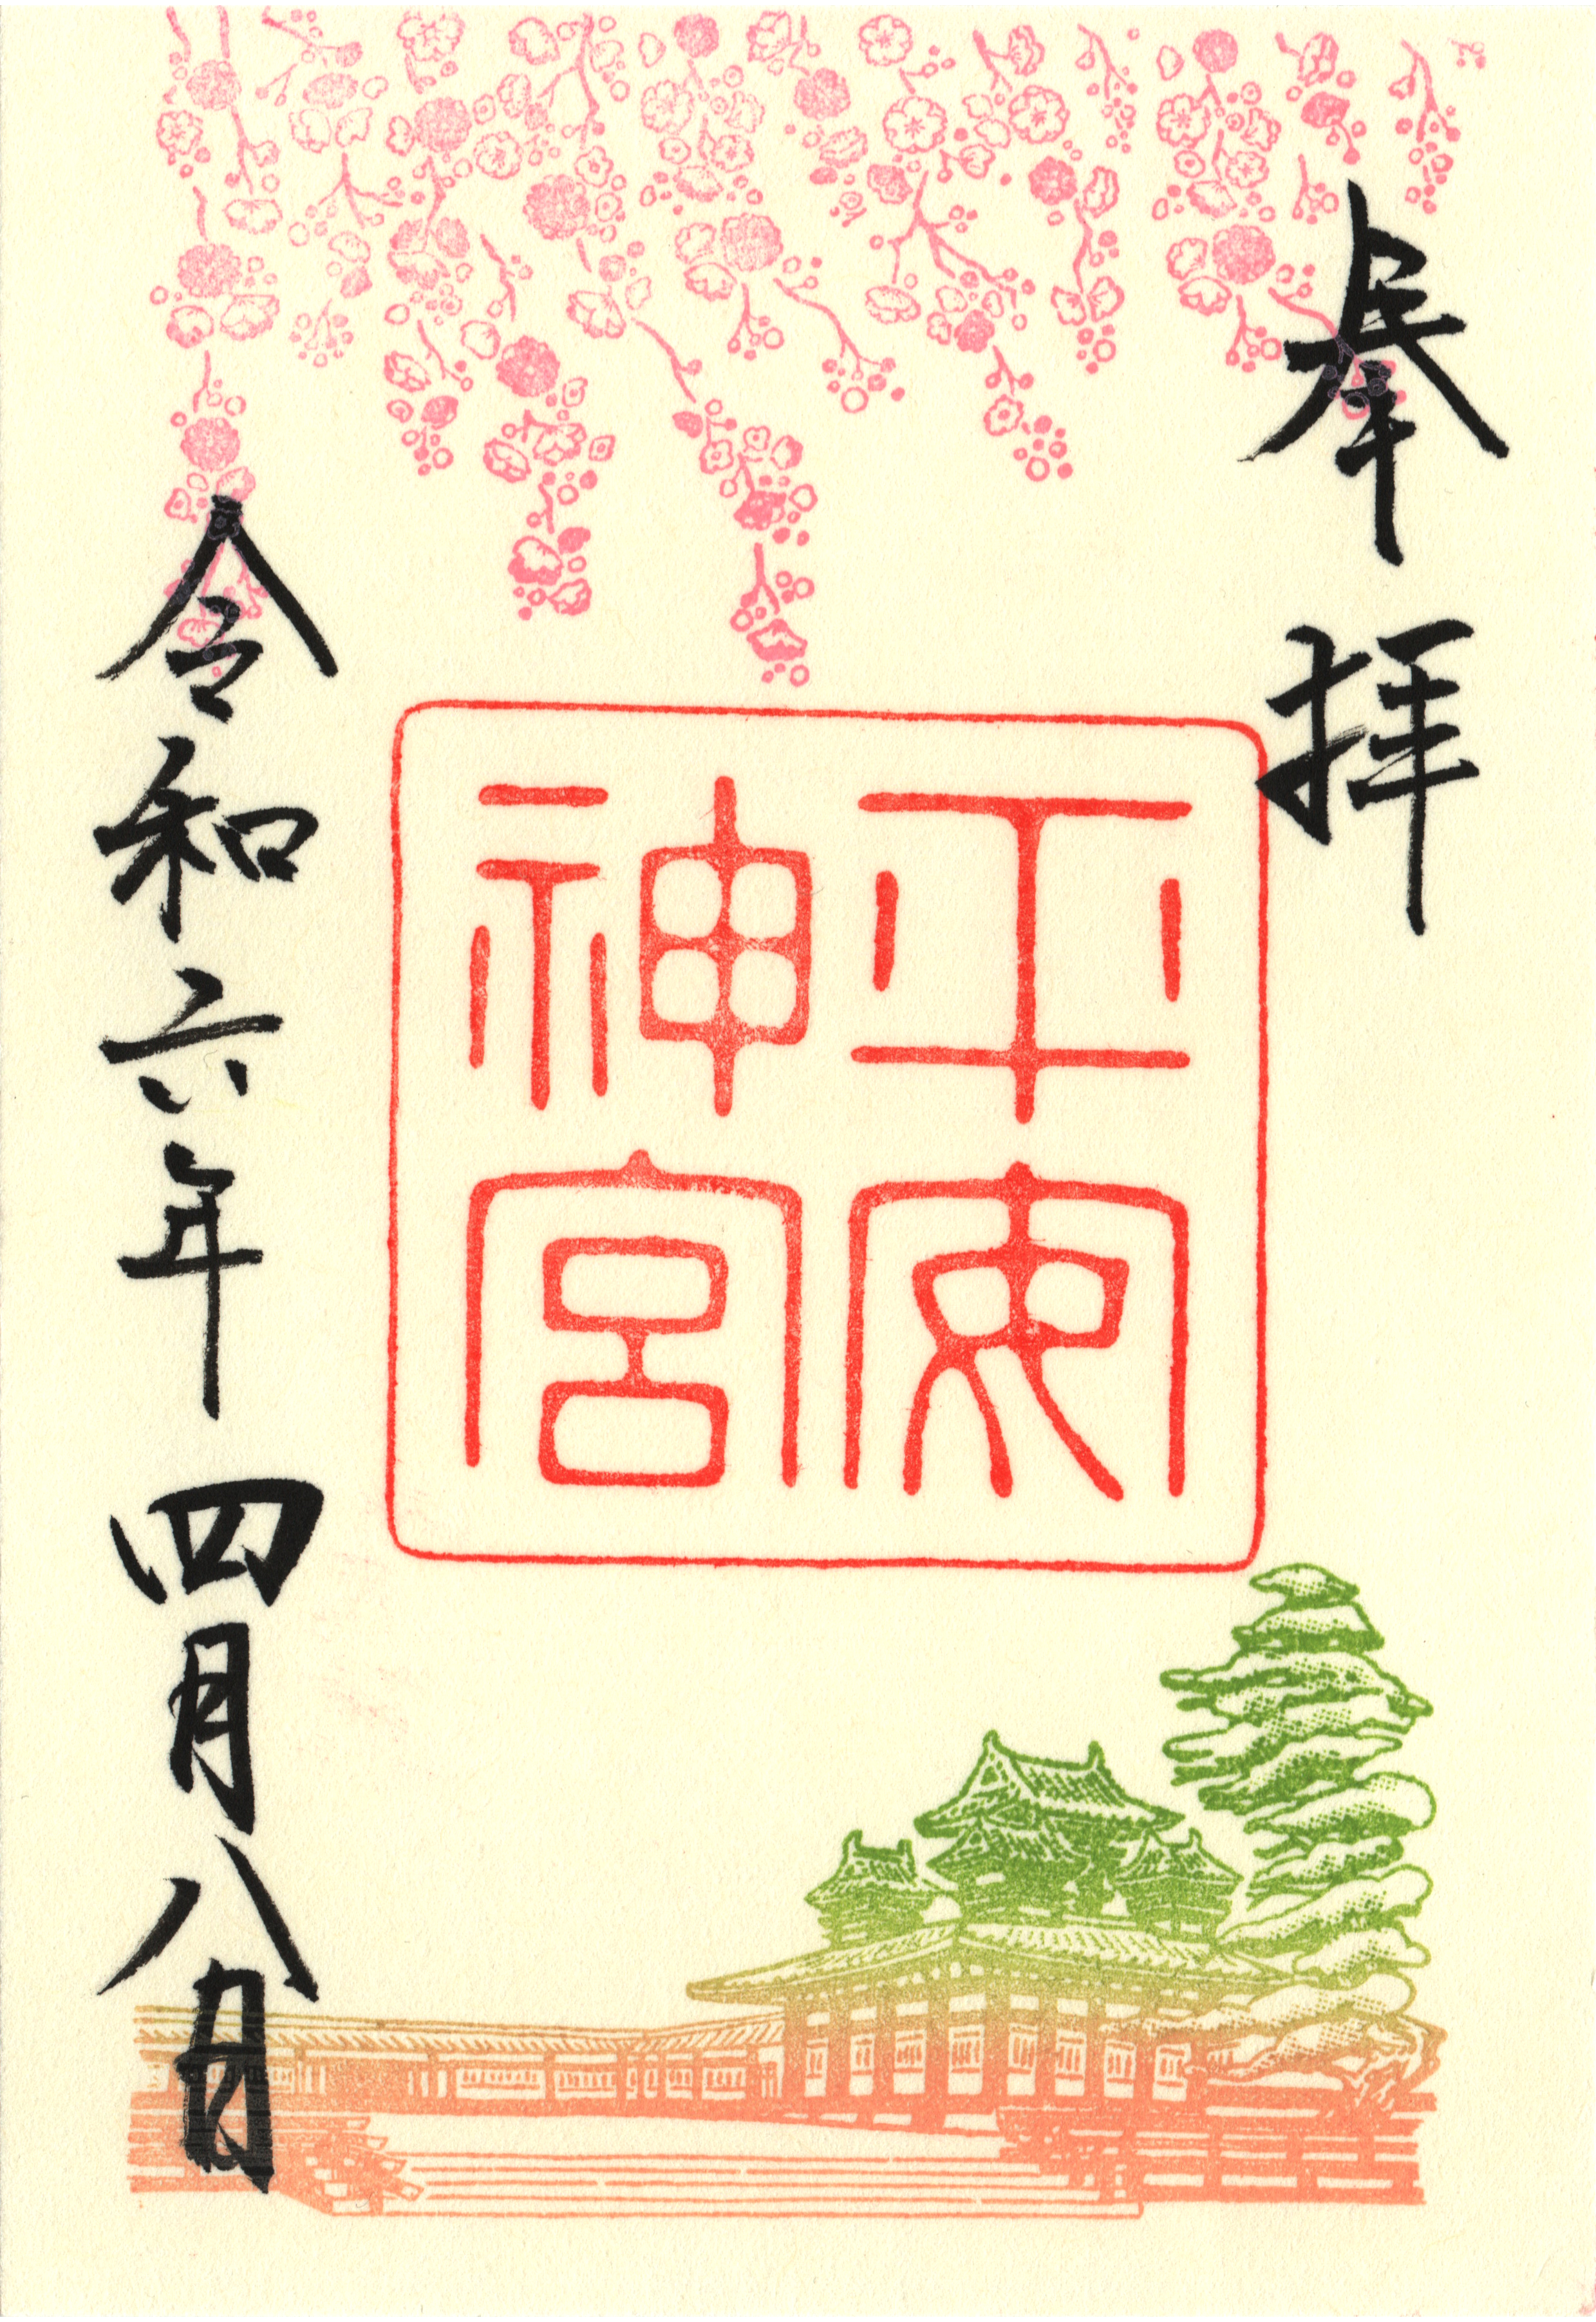 奉拝
平安
神宮
令和六年四月八日